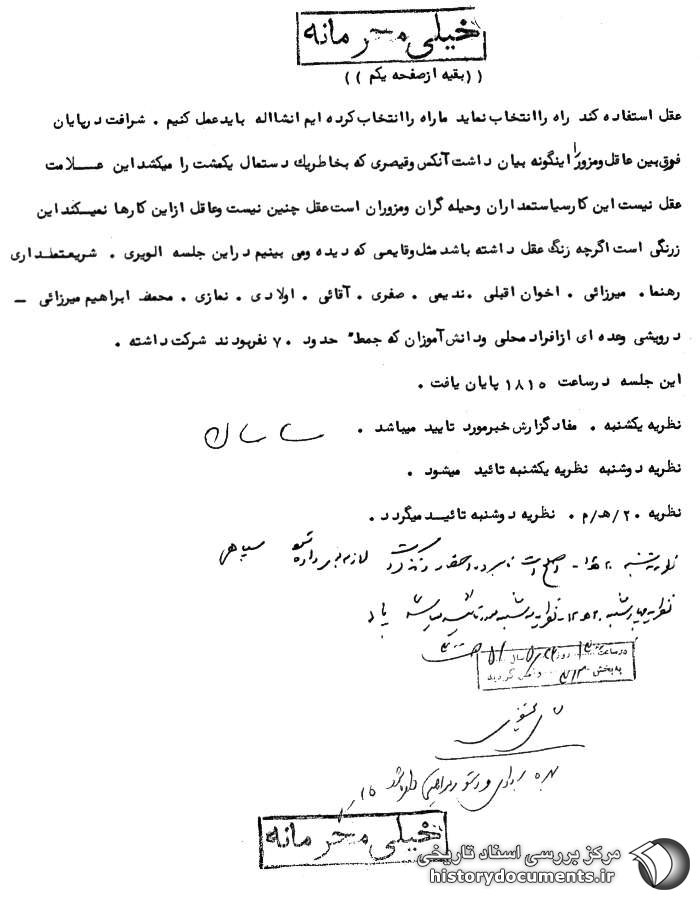 خیلی محرمانه
((بقیه ازصفحه یکم))
عقل استفاده کند راه را انتخاب نماید ماراه را انتخاب کرده ایم انشااله باید عمل کنیم . شرافت درپایان
فوق بین عاقل ومزور را اینگونه بیان داشت آنکس وقیصری که بخاطریك دستمال یکمشت را میکشد این عــلامت
عقل نیست این کارسیاستمداران وحیله گران ومزوران است عقل چنین نیست وعاقل ازاین کارها نمیکند این
زرنگی است اگرچه زنگ عقل داشته باشد مثل وقایعی که دیده ومی بینیم دراین جلسه الویری . شریعتمداری
رهنما . میرزائی . اخوان اقبلی . ندیعی . صفری . آقائی . اولادی . نمازی . محمد ابراهیم میرزائی –
درویشی وعده ای ازافراد محلی ودانش آموزان که جمعا" حدود ۷۰ نفربودند شرکت داشته .
این جلسه درساعت ۱۸۱۵ پایان یافت .
نظریه یکشنبه . مفاد گزارش خبرمورد تایید میباشد .
نظریه دوشنبه نظریه یکشنبه تائید میشود .
نظریه ۲۰/ه‍/م . نظریه دوشنبه تائیــد میگردد .
نظریه سه‌شنبه
نظریه چهارشنبه
درساعت روز سال
به‌بخش واصل گردید
خیلی محرمانه
مرکز بررسی اسناد تاریخی
historydocuments.ir